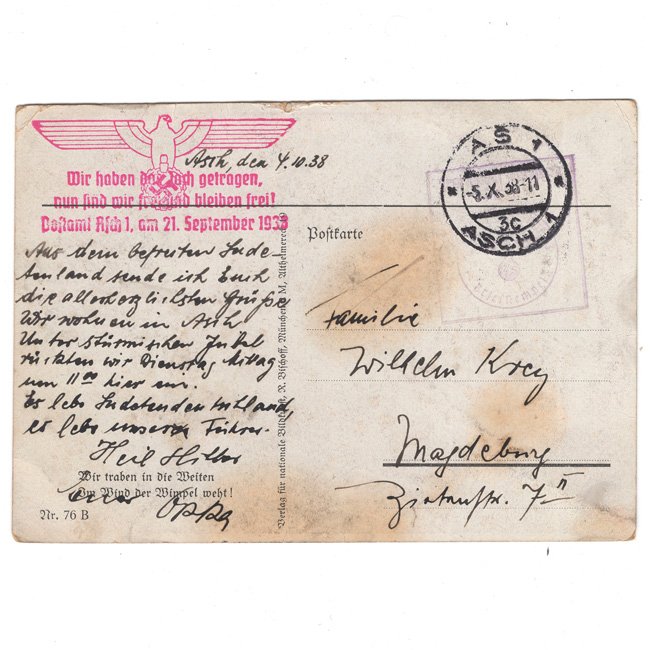 Wir haben das Joch getragen,
nun sind wir frei und bleiben frei!
Postamt Asch 1, am 21. September 193
Asch, den 4.10.38
Aus dem befreiten Sude-
tenland sende ich Euch
die allerherzlichsten Grüße
Wir wohnen in Asch
Unter stürmischen Jubel
rückten wir Dienstag Mittag
um 11⁰⁰ hier ein.
Es lebe Sudetendeutschland,
es lebe unseren Führer.
Heil Hitler
Wir traben in die Weiten
Im Wind der Wimpel weht!
Euer Oppa
Nr. 76 B
Verlag für nationale Bildkunst, R. Bischoff, München 2 M, Altheimereck
Postkarte
AŠ 1
-5.X.38-11
3c
ASCH 1
Familie
Wilhelm Krey
Magdeburg
7 II